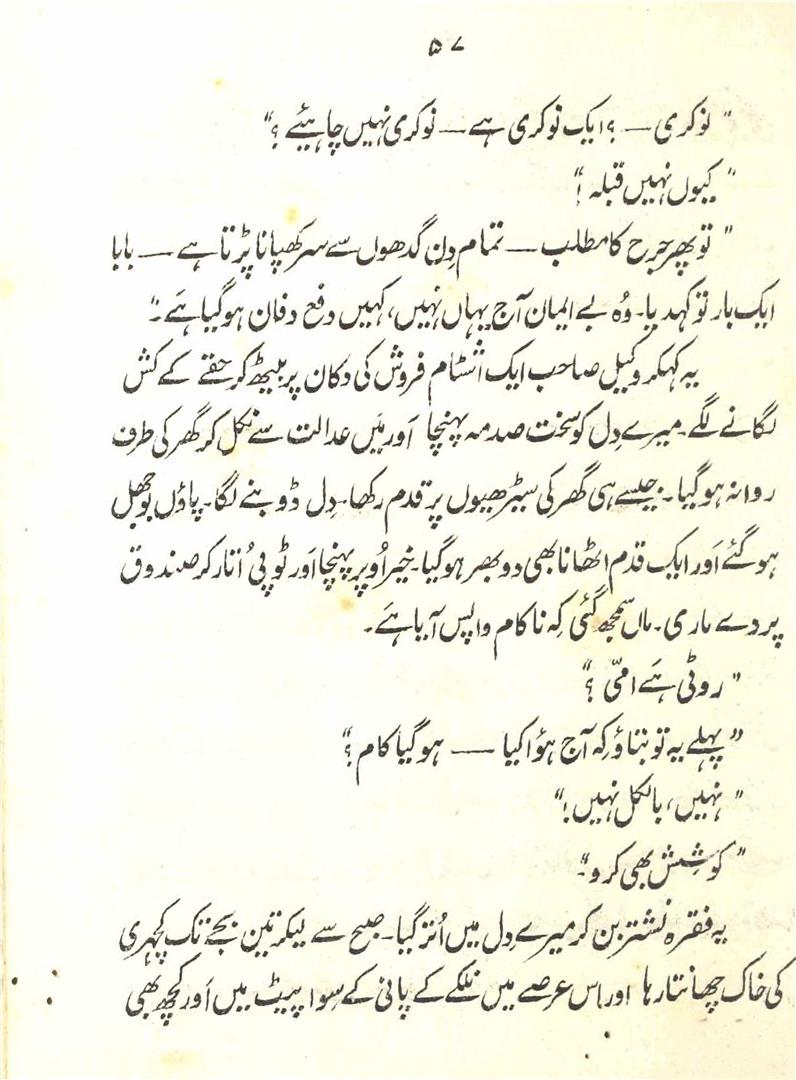 ۵۷
"نوکری — ؟ ایک نوکری ہے — نوکری نہیں چاہیئے؟"
"کیوں نہیں قبلہ!"
"تو پھر جرح کا مطلب — تمام دِن گدھوں سے سر کھپانا پڑتا ہے — بابا
ایک بار تو کہدیا۔ وُہ بے ایمان آج یہاں نہیں، کہیں دفع دفان ہوگیا ہَے۔"
یہ کہکر وکیل صاحب ایک اشٹام فروش کی دکان پر بیٹھ کر حقے کے کش
لگانے لگے۔ میرے دِل کو سخت صدمہ پہنچا اَور مَیں عدالت سے نکل کر گھر کی طرف
روانہ ہوگیا۔ جیسے ہی گھر کی سیڑھیوں پر قدم رکھا۔ دِل ڈوبنے لگا۔ پاؤں بوجھل
ہوگئے اَور ایک قدم اٹھانا بھی دوبھر ہوگیا۔ خیر اُوپر پہنچا اَور ٹوپی اُتار کر صندوق
پر دے ماری۔ ماں سمجھ گئی کہ ناکام واپس آیا ہَے۔
"روٹی ہَے امّی؟"
"پہلے یہ تو بتاؤ کہ آج ہؤا کیا — ہوگیا کام؟"
"نہیں، بالکل نہیں!"
"کوشِش بھی کرو۔"
یہ فقرہ نشتر بن کر میرے دِل میں اُتر گیا۔ صبح سے لیکر تین بجے تک کچہری
کی خاک چھانتا رہا اور اس عرصے میں نلکے کے پانی کے سِوا پیٹ میں اَور کچھ بھی